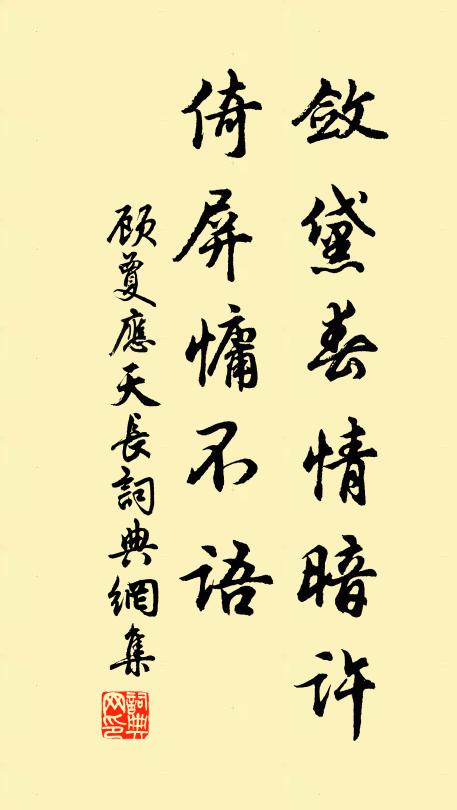 斂黛春情暗許
倚屏慵不語
顧夐應天長詞典網集
詞典网印